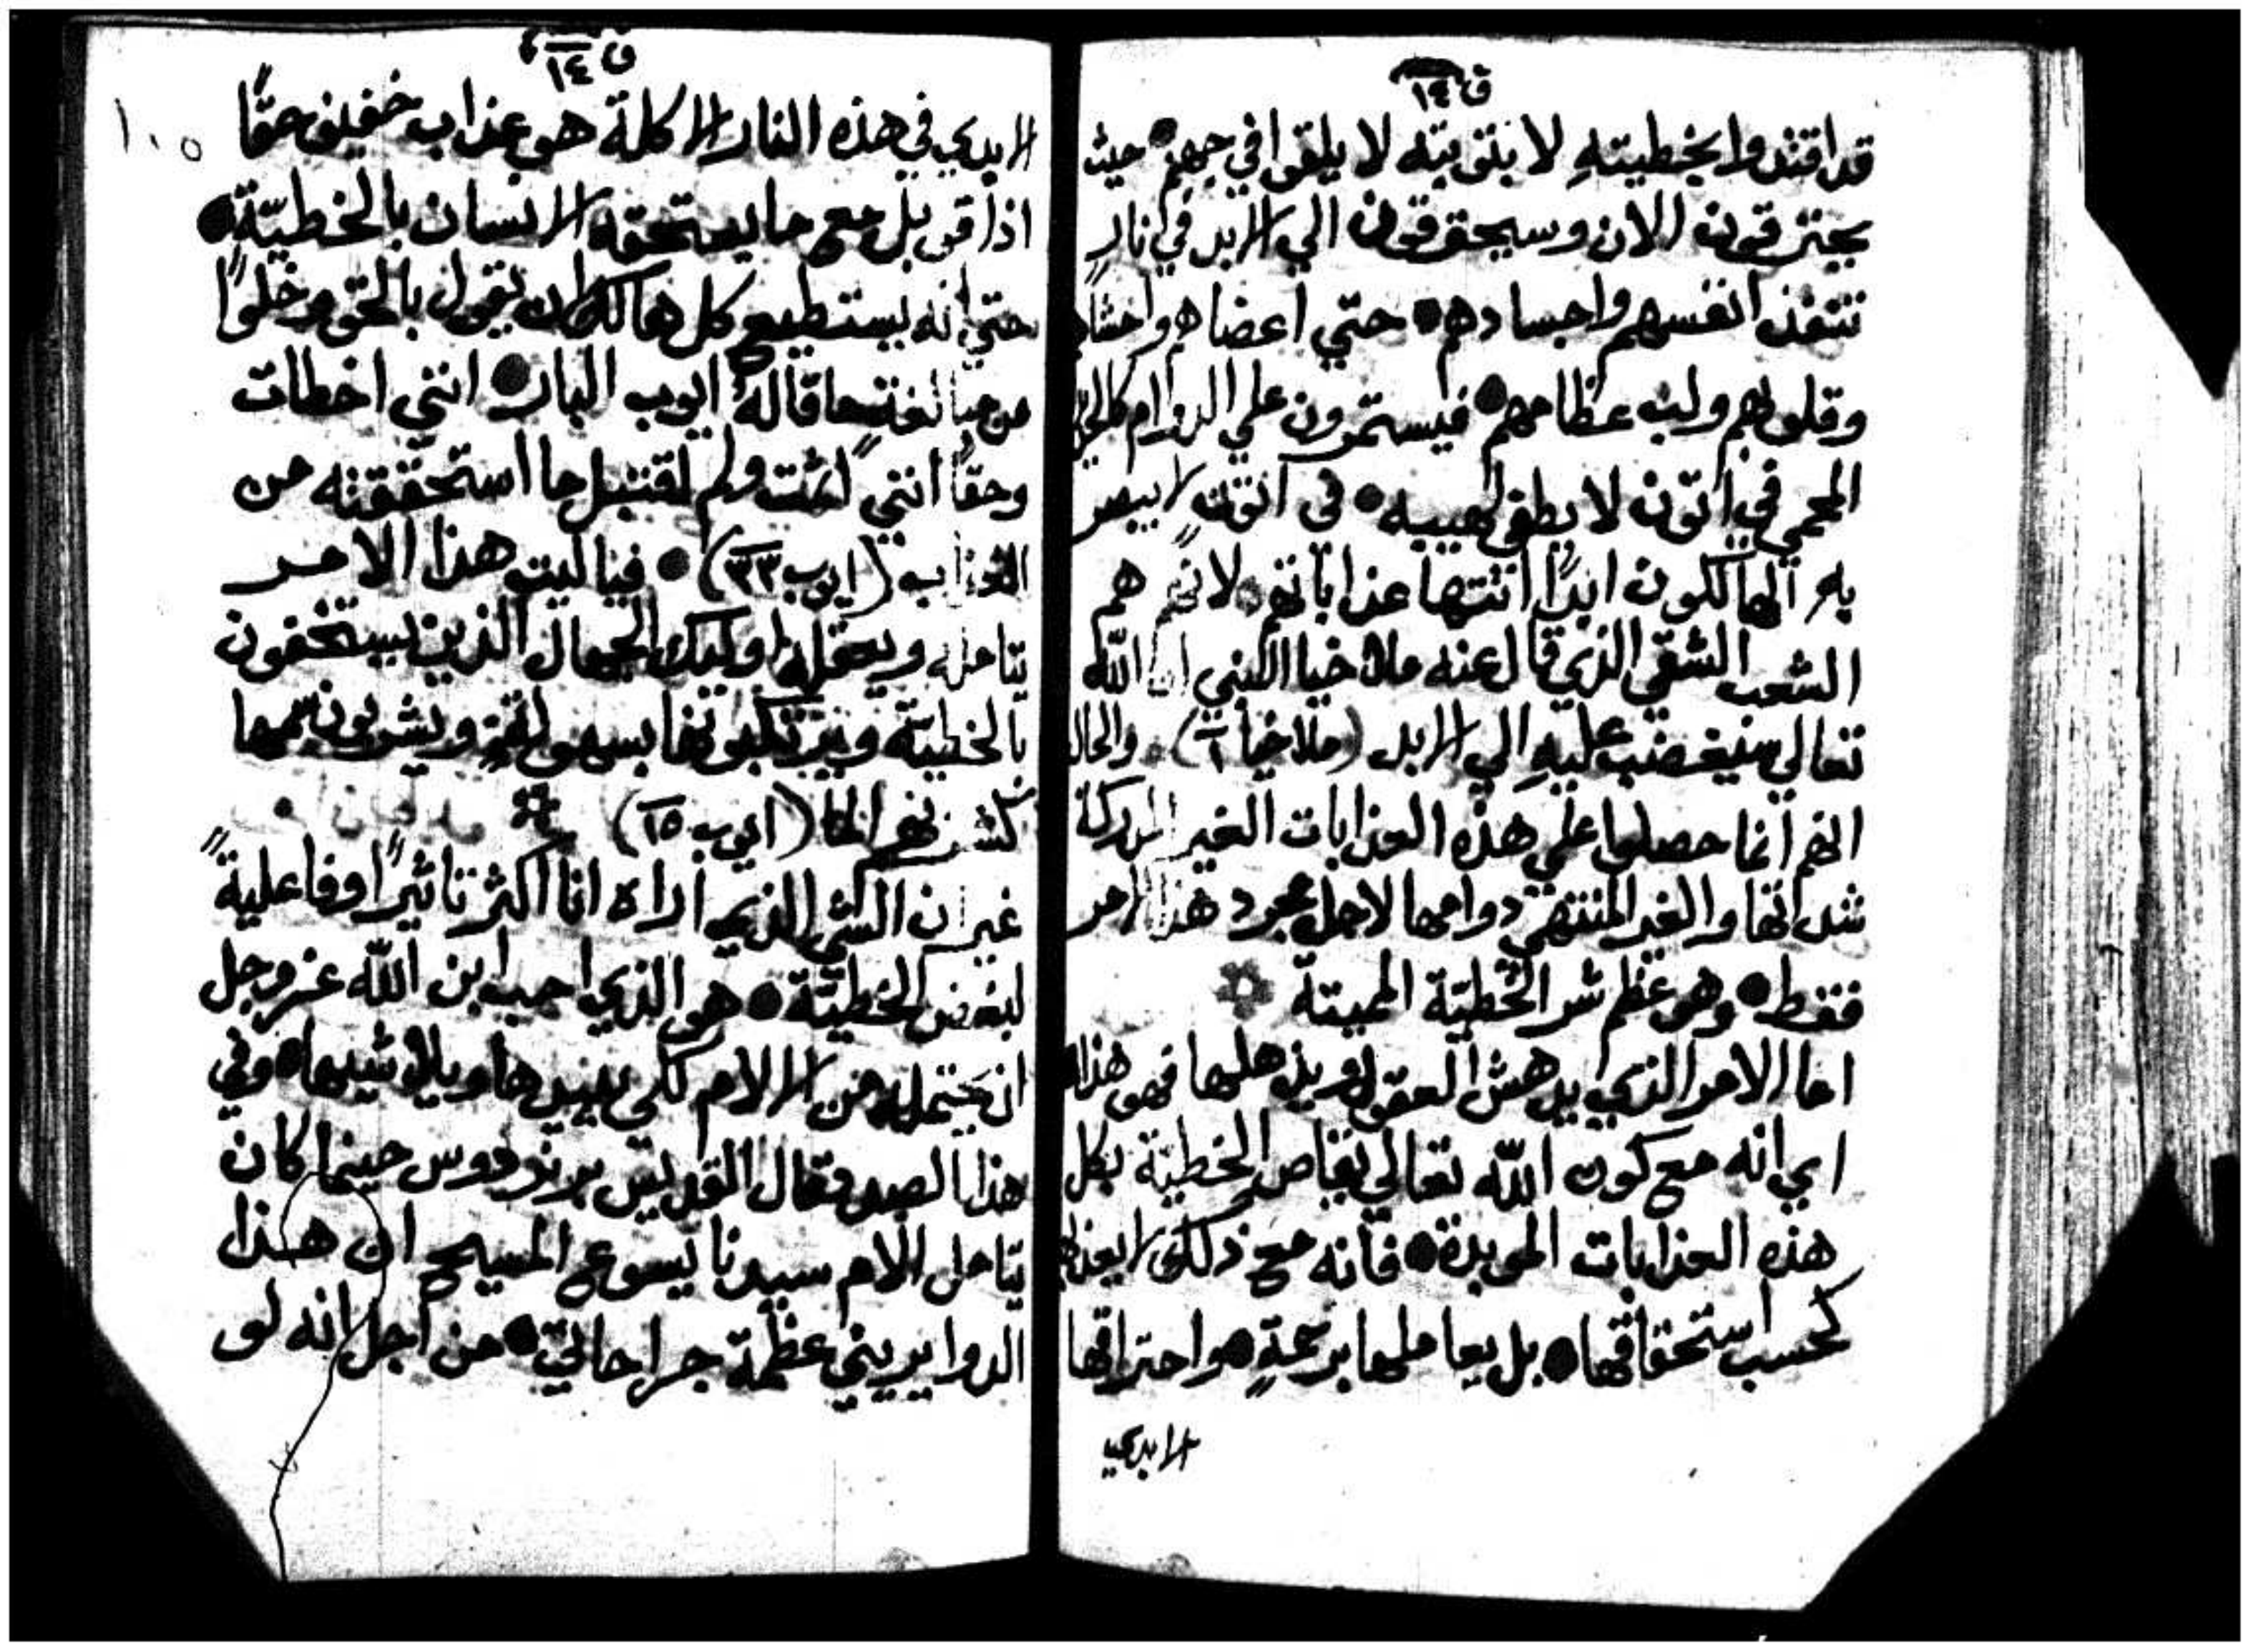 ق ١٤
قد اقتدوا بخطيته لا بتوبته لا يلقوا في جهنم • حيث
يحترقون الان وسيحترقون الي الابد في نار
تنفذ انفسهم واجسادهم • حتي اعضاهم واحشاهم
وقلوبهم ولب عظامهم • فيستمرون علي الدوام
المحمي في اتون لا يطفي لهيبه • في اتون لا يبصر
به الهالكون ابدًا انتها عذاباتهم • لانهم هم
الشعب الشقي الذي قال عنه ملاخيا النبي ان الله
تعالي سيغضب عليه الي الابد (ملاخيا ١) • والحال
انهم انما حصلوا علي هذه العذابات الغير المدركة
شداتها والغير المنتهي دوامها لاجل مجرد هذا الامر
فقط • وهو عظم شر الخطيّة المميتة
اما الامر الذي يدهش العقول ويذهلها فهو هذا
اي انه مع كون الله تعالي يقاص الخطيّة بكل
هذه العذابات الموبدة • فانه مع ذلك لا يعذبها
كحسب استحقاقها • بل يعاملها برحمةٍ • واحتراقها
الابدي
ق ١٤
١٠٥
الابدي في هذه النار الاكلة هو عذاب خفيف حقًا
اذا قوبل مع ما يستحقه الانسان بالخطيّة •
حتي انه يستطيع كل هالك ان يقول بالحق وخلوًا
من مبالغة ما قاله ايوب البار • انني اخطات
وحقًا انني اثمت ولم اقتبل ما استحققته من
العذاب (ايوب ٣٣) • فيا ليت هذا الامر
يتامله ويعقله اوليك الجهال الذين يستخفون
بالخطيّة ويرتكبونها بسهولةٍ ويشربون سمها
كشربهم الما (ايوب ١٥)
غير ان الشي الذي اراه انا اكثر تاثيرًا وفاعليةً
لبغض الخطيّة • هو الذي احب ابن الله عز وجل
ان يحتمله من الالام لكي يبيدها ويلاشيها • وفي
هذا الصدد قال القديس برنردوس حينما كان
يتامل الام سيدنا يسوع المسيح ان هذا
الدوا يريني عظمة جراحاتي • من اجل انه لو